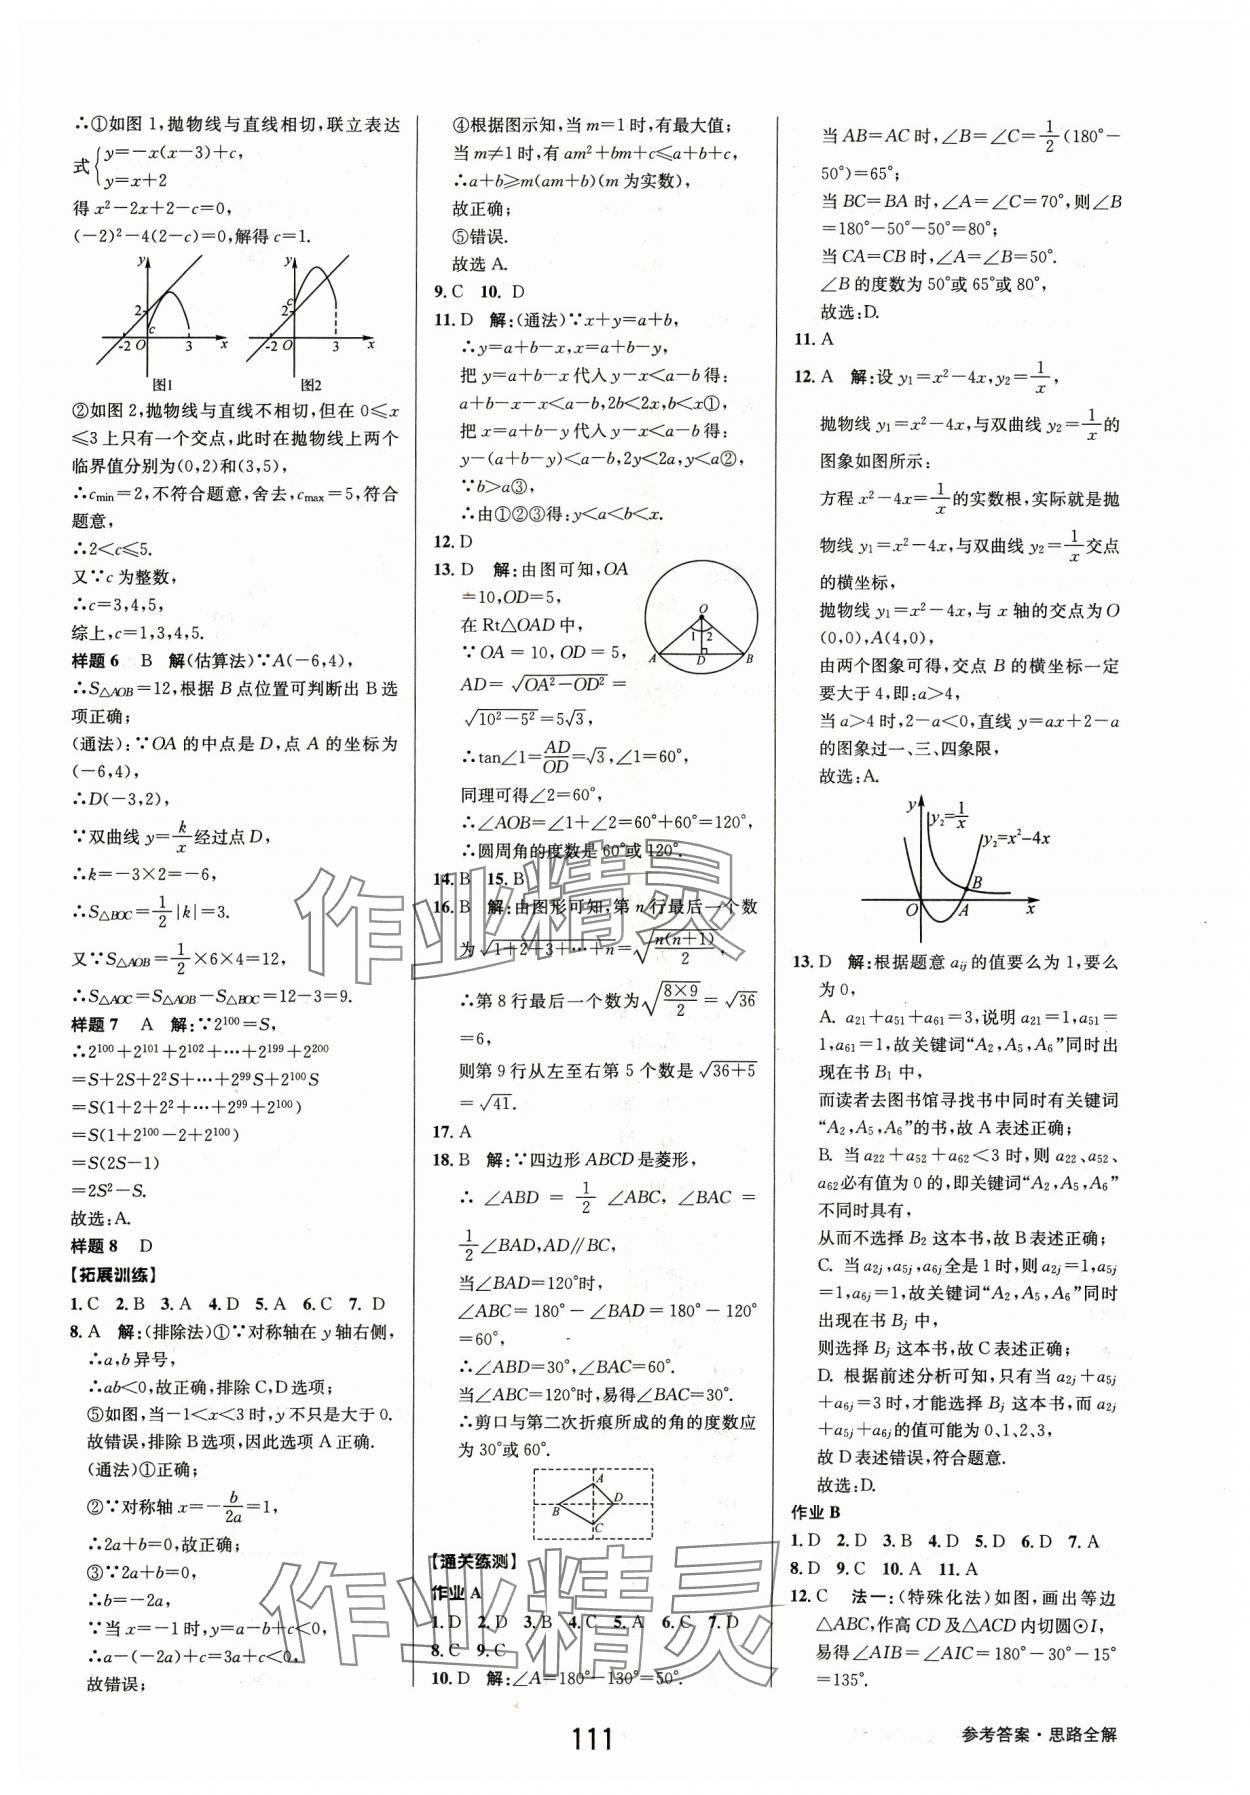 ∴①如图1,抛物线与直线相切,联立表达
式{y=-x(x-3)+c,
y=x+2
得 x²-2x+2-c=0,
(-2)²-4(2-c)=0,解得 c=1.
y y
2 c 2 c
-2 O 3 x -2 O 3 x
图1 图2
②如图2,抛物线与直线不相切,但在 0≤x
≤3上只有一个交点,此时在抛物线上两个
临界值分别为(0,2)和(3,5),
∴c_min=2,不符合题意,舍去,c_max=5,符合
题意,
∴2<c≤5.
又∵c 为整数,
∴c=3,4,5,
综上,c=1,3,4,5.
样题6 B 解(估算法)∵A(-6,4),
∴S△AOB=12,根据 B 点位置可判断出 B 选
项正确;
(通法):∵OA 的中点是 D,点 A 的坐标为
(-6,4),
∴D(-3,2),
∵双曲线 y=k/x 经过点 D,
∴k=-3×2=-6,
∴S△BOC=1/2|k|=3.
又∵S△AOB=1/2×6×4=12,
∴S△AOC=S△AOB-S△BOC=12-3=9.
样题7 A 解:∵2¹⁰⁰=S,
∴2¹⁰⁰+2¹⁰¹+2¹⁰²+…+2¹⁹⁹+2²⁰⁰
=S+2S+2²S+…+2⁹⁹S+2¹⁰⁰S
=S(1+2+2²+…+2⁹⁹+2¹⁰⁰)
=S(1+2¹⁰⁰-2+2¹⁰⁰)
=S(2S-1)
=2S²-S.
故选:A.
样题8 D
【拓展训练】
1.C 2.B 3.A 4.D 5.A 6.C 7. D
8.A 解:(排除法)①∵对称轴在 y 轴右侧,
∴a,b 异号,
∴ab<0,故正确,排除 C,D 选项;
⑤如图,当-1<x<3 时,y 不只是大于 0.
故错误,排除 B 选项,因此选项 A 正确.
(通法)①正确;
②∵对称轴 x=-b/2a=1,
∴2a+b=0,故正确;
③∵2a+b=0,
∴b=-2a,
∵当 x=-1 时,y=a-b+c<0,
∴a-(-2a)+c=3a+c<0,
故错误;
④根据图示知,当 m=1 时,有最大值;
当 m≠1 时,有 am²+bm+c≤a+b+c,
∴a+b≥m(am+b)(m 为实数),
故正确;
⑤错误.
故选 A.
9.C 10. D
11. D 解:(通法)∵x+y=a+b,
∴y=a+b-x,x=a+b-y,
把 y=a+b-x 代入 y-x<a-b 得:
a+b-x-x<a-b,2b<2x,b<x①,
把 x=a+b-y 代入 y-x<a-b 得:
y-(a+b-y)<a-b,2y<2a,y<a②,
∵b>a③,
∴由①②③得:y<a<b<x.
12. D
13. D 解:由图可知,OA
=10,OD=5,
在 Rt△OAD 中,
∵OA=10,OD=5,
AD=√(OA²-OD²)=
√(10²-5²)=5√3,
O
1 2
A D B
∴tan∠1=AD/OD=√3,∠1=60°,
同理可得∠2=60°,
∴∠AOB=∠1+∠2=60°+60°=120°,
∴圆周角的度数是 60°或 120°.
14. B 15. B
16. B 解:由图形可知,第 n 行最后一个数
为√(1+2+3+…+n)=√(n(n+1)/2),
∴第 8 行最后一个数为√(8×9/2)=√36
=6,
则第 9 行从左至右第 5 个数是√(36+5)
=√41.
17. A
18. B 解:∵四边形 ABCD 是菱形,
∴∠ABD=1/2∠ABC,∠BAC=
1/2∠BAD,AD∥BC,
当∠BAD=120°时,
∠ABC=180°-∠BAD=180°-120°
=60°,
∴∠ABD=30°,∠BAC=60°.
当∠ABC=120°时,易得∠BAC=30°.
∴剪口与第二次折痕所成的角的度数应
为 30°或 60°.
A
B D
C
【通关练测】
作业 A
1. D 2. D 3. B 4. C 5. A 6. C 7. D
8. C 9. C
10. D 解:∠A=180°-130°=50°.
当 AB=AC 时,∠B=∠C=1/2(180°-
50°)=65°;
当 BC=BA 时,∠A=∠C=70°,则∠B
=180°-50°-50°=80°;
当 CA=CB 时,∠A=∠B=50°.
∠B 的度数为 50°或 65°或 80°,
故选:D.
11. A
12. A 解:设 y₁=x²-4x,y₂=1/x,
抛物线 y₁=x²-4x,与双曲线 y₂=1/x 的
图象如图所示:
方程 x²-4x=1/x 的实数根,实际就是抛
物线 y₁=x²-4x,与双曲线 y₂=1/x 交点
的横坐标,
抛物线 y₁=x²-4x,与 x 轴的交点为 O
(0,0),A(4,0),
由两个图象可得,交点 B 的横坐标一定
要大于 4,即:a>4,
当 a>4 时,2-a<0,直线 y=ax+2-a
的图象过一、三、四象限,
故选:A.
y y₂=1/x
y₂=x²-4x
B
O A x
13. D 解:根据题意 aᵢⱼ 的值要么为 1,要么
为 0,
A. a₂₁+a₅₁+a₆₁=3,说明 a₂₁=1,a₅₁=
1,a₆₁=1,故关键词“A₂,A₅,A₆”同时出
现在书 B₁ 中,
而读者去图书馆寻找书中同时有关键词
“A₂,A₅,A₆”的书,故 A 表述正确;
B. 当 a₂₂+a₅₂+a₆₂<3 时,则 a₂₂、a₅₂、
a₆₂必有值为 0 的,即关键词“A₂,A₅,A₆”
不同时具有,
从而不选择 B₂ 这本书,故 B 表述正确;
C. 当 a₂ⱼ,a₅ⱼ,a₆ⱼ全是 1 时,则 a₂ⱼ=1,a₅ⱼ
=1,a₆ⱼ=1,故关键词“A₂,A₅,A₆”同时
出现在书 Bⱼ 中,
则选择 Bⱼ 这本书,故 C 表述正确;
D. 根据前述分析可知,只有当 a₂ⱼ+a₅ⱼ
+a₆ⱼ=3 时,才能选择 Bⱼ 这本书,而 a₂ⱼ
+a₅ⱼ+a₆ⱼ的值可能为 0、1、2、3,
故 D 表述错误,符合题意.
故选:D.
作业 B
1. D 2. D 3. B 4. D 5. D 6. D 7. A
8. D 9. C 10. A 11. A
12. C 法一:(特殊化法)如图,画出等边
△ABC,作高 CD 及△ACD 内切圆⊙I,
易得∠AIB=∠AIC=180°-30°-15°
=135°.
作业精灵
作业精灵
111
参考答案·思路全解